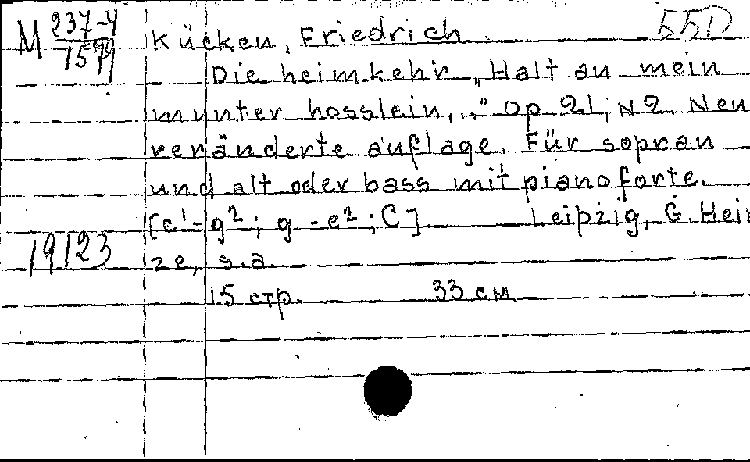 M 237-4 / 759
Kücken, Friedrich
Die heimkehr „Halt an mein
munter hosslein,.." Op 21, N 2. Neu
veränderte auflage. Für sopran
und alt oder bass mit pianoforte.
[c¹-g²; g-e²; C] Leipzig, G. Hein
ze, s.a.
15 стр. 33 см
19123